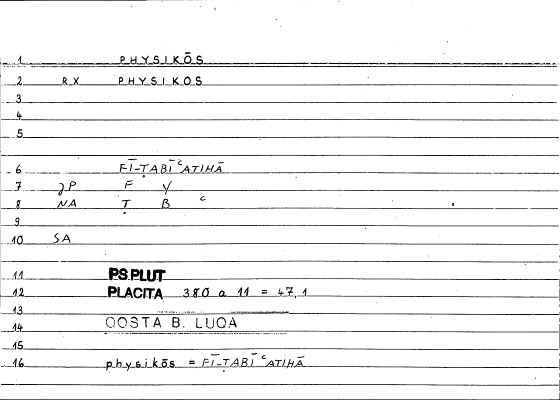 1 PHYSIKŌS
2 RX PHYSIKOS
3
4
5
6 FĪ-ṬABĪʿATIHĀ
7 JP F Y
8 NA Ṭ B ʿ
9
10 SA
11 PS.PLUT
12 PLACITA 380 a 11 = 47,1
13
14 QOSTA B. LUQA
15
16 physikōs = FĪ-ṬABĪʿATIHĀ